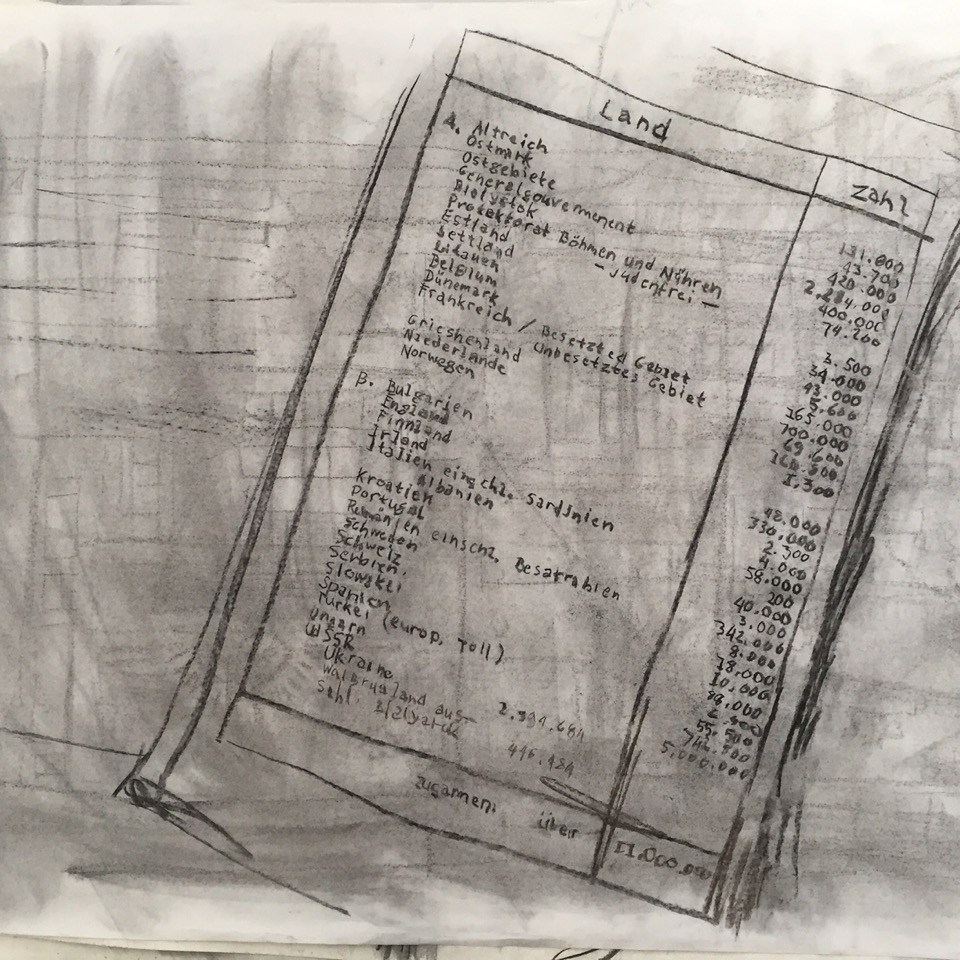 Land Zahl
A. Altreich 131.800
Ostmark 43.700
Ostgebiete 420.000
Generalgouvernement 2.284.000
Bialystok 400.000
Protektorat Böhmen und Nähren 74.200
Estland - judenfrei -
Lettland 3.500
Litauen 34.000
Belgium 43.000
Dünemark 5.600
Frankreich / Besetzted Gebiet 165.000
Unbesetztes Gebiet 700.000
Grieshenland 69.600
Niederlande 160.800
Norwegen 1.300
B. Bulgarien 48.000
England 330.000
Finnland 2.300
Irland 4.000
Italien einschl. Sardinien 58.000
Albanien 200
Kroatien 40.000
Portugal 3.000
Rumänien einschl. Besarabien 342.000
Schweden 8.000
Schweiz 18.000
Serbien 10.000
Slowakei 88.000
Spanien
Türkei (europ. Teil) 55.500
Ungarn
UdSSR 5.000.000
Ukraine 2.994.684
aus-
446.484
Zusammen: über 11.000.000